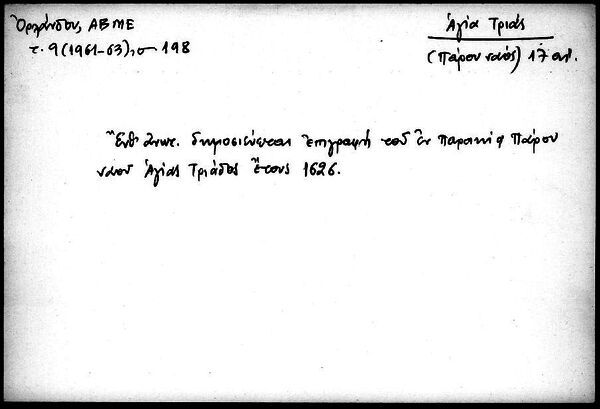 Ὀρλάνδου, ΑΒΜΕ
τ. 9 (1961-63), σ 198
Ἁγία Τριάς
(Πάρου ναός) 17 αἰ.
Ἔνθ' ἀνωτ. δημοσιεύεται ἐπιγραφή τοῦ ἐν Παροικίᾳ Πάρου
ναοῦ Ἁγίας Τριάδος ἔτους 1626.